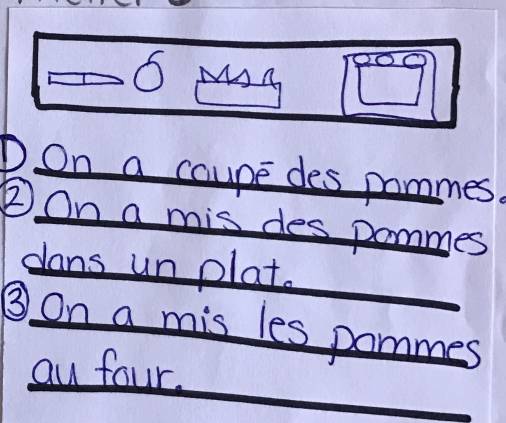 ① On a coupé des pommes.
② On a mis des pommes
dans un plat.
③ On a mis les pommes
au four.